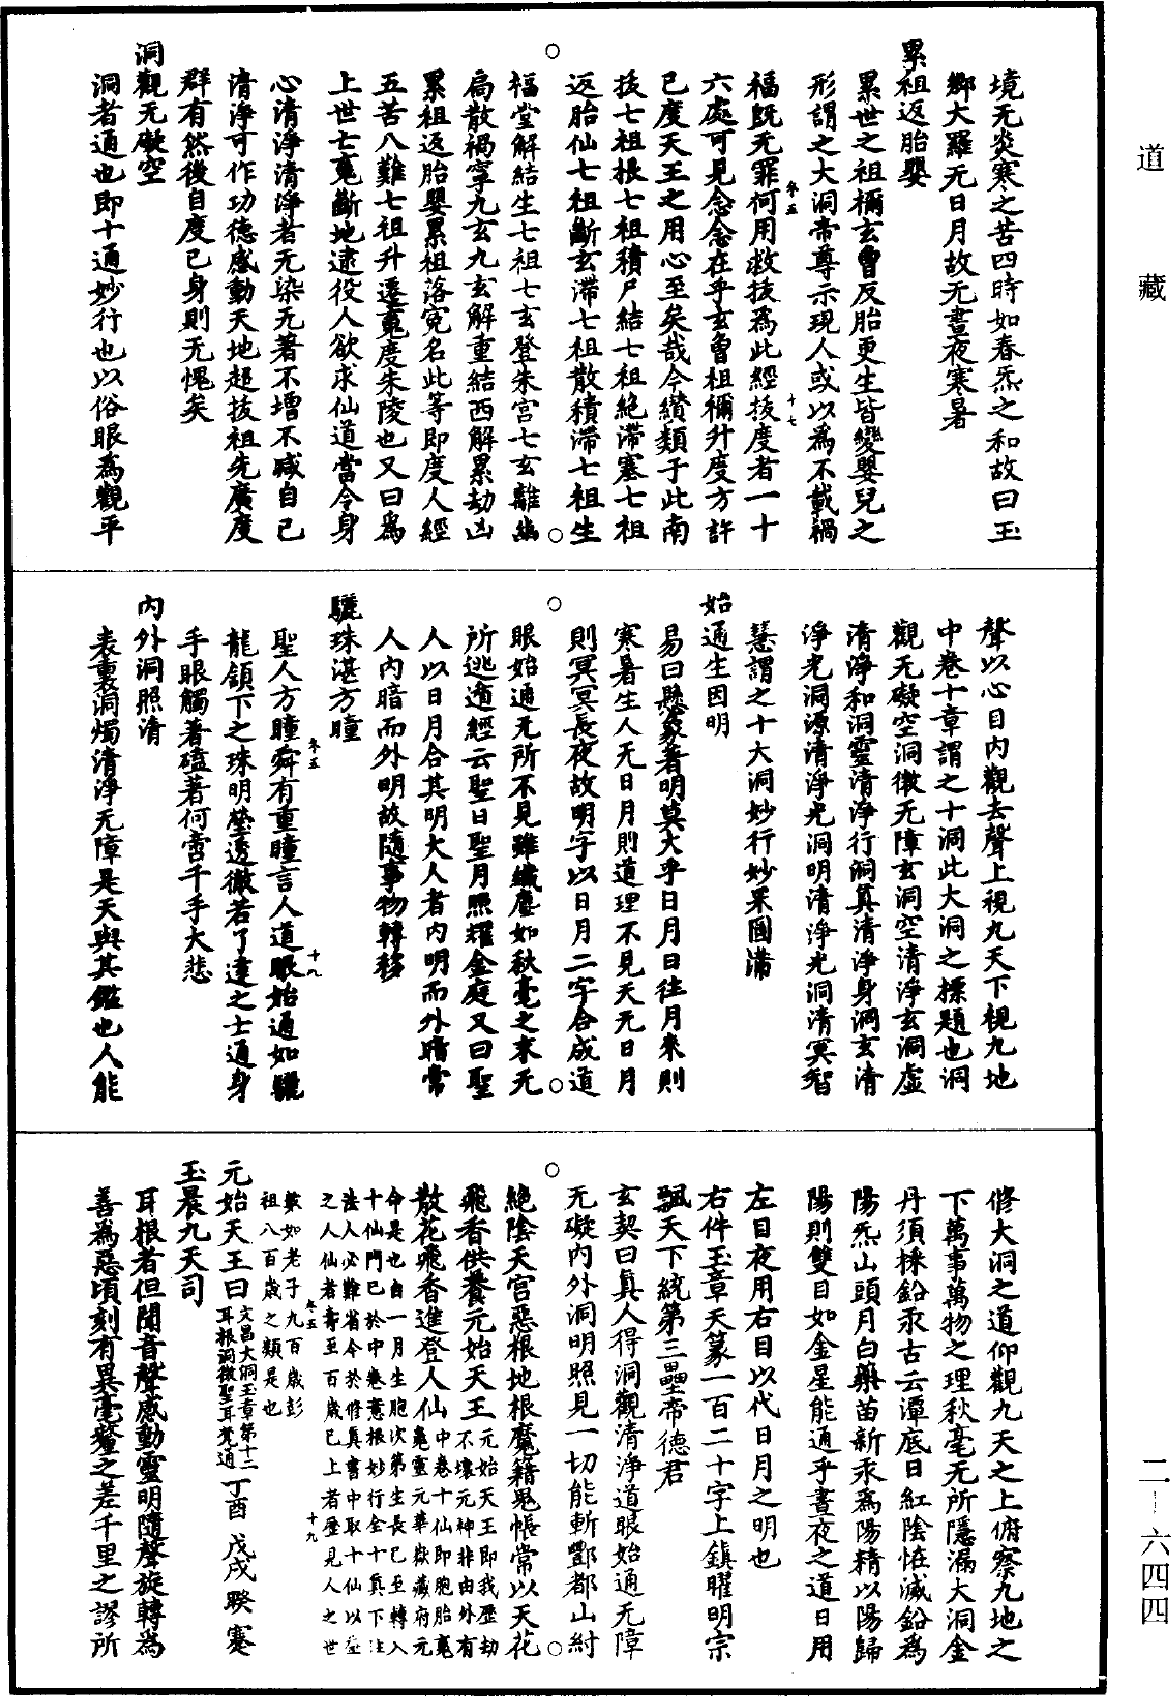 道藏
二—六四四
境无炎寒之苦四時如春炁之和故曰玉
鄉大羅无日月故无晝夜寒暑
累祖返胎嬰
累世之祖禰玄曾反胎更生皆變嬰兒之
形謂之大洞帝尊示現人或以為不載禍
卷五 十七
福既无罪何用救拔為此經拔度者一十
六處可見念念在乎玄曾祖禰升度方許
已度天王之用心至矣哉今纘類于此南
拔七祖根七祖積尸結七祖絕滯塞七祖
返胎仙七祖斷玄滯七祖散積滯七祖生
福堂解結生七祖七玄登朱宮七玄離幽
扃散禍寧九玄九玄解重結西解累劫凶
累祖返胎嬰累祖落寃名此等即度人經
五苦八難七祖升遷䰟度朱陵也又曰為
上世亡䰟斷地逮役人欲求仙道當令身
心清淨清淨者无染无著不增不減自己
清淨可作功德感動天地超拔祖先廣度
群有然後自度已身則无愧矣
洞觀无礙空
洞者通也即十通妙行也以俗眼為觀平
聲以心目內觀去聲上視九天下視九地
中卷十章謂之十洞此大洞之標題也洞
觀无礙空洞徹无障玄洞空清淨玄洞虛
清淨和洞靈清淨行洞真清淨身洞玄清
淨光洞源清淨光洞明清淨光洞清冥智
慧謂之十大洞妙行妙果圓滿
始通生因明
易曰懸象著明莫大乎日月日往月來則
寒暑生人无日月則道理不見天无日月
則冥冥長夜故明字以日月二字合成道
眼始通无所不見雖纖塵如秋毫之末无
所逃遁經云聖日聖月照耀金庭又曰聖
人以日月合其明大人者內明而外暗常
人內暗而外明故隨事物轉移
驪珠湛方瞳
卷五 十八
聖人方瞳舜有重瞳言人道眼始通如驪
龍頷下之珠明瑩透徹若了達之士通身
手眼觸著磕著何啻千手大悲
內外洞照清
表裏洞燭清淨无障是天與其鑑也人能
修大洞之道仰觀九天之上俯察九地之
下萬事萬物之理秋毫无所隱漏大洞金
丹須採鉛汞古云潭底日紅陰怪滅鉛為
陽炁山頭月白藥苗新汞為陽精以陽歸
陽則雙目如金星能通乎晝夜之道日用
左目夜用右目以代日月之明也
右件玉章天篆一百二十字上鎮曜明宗
飄天下統第三壘帝德君
玄契曰真人得洞觀清淨道眼始通无障
无礙內外洞明照見一切能斬酆都山紂
絕陰天宮惡根地根魔籍鬼帳常以天花
飛香供養元始天王元始天王即我歷劫不壞元神非由外有
散花飛香進登人仙中卷十仙即胞胎䰟䰟靈元華嶽藏府元
命是也自一月生胞次第生長已至轉入
十仙門已於中卷慧根妙行全十真下注
法人必難省今於修真書中取十仙以益
之人仙者壽至百歲已上者歷見人之世
卷五 十九
數如老子九百歲彭
祖八百歲之類是也
元始天王曰文昌大洞玉章第十二耳根洞徹聖耳覺通丁酉 戊戌 睽 蹇
玉晨九天司
耳根者但聞音聲感動靈明隨聲旋轉為
善為惡頃刻有異毫釐之差千里之謬所